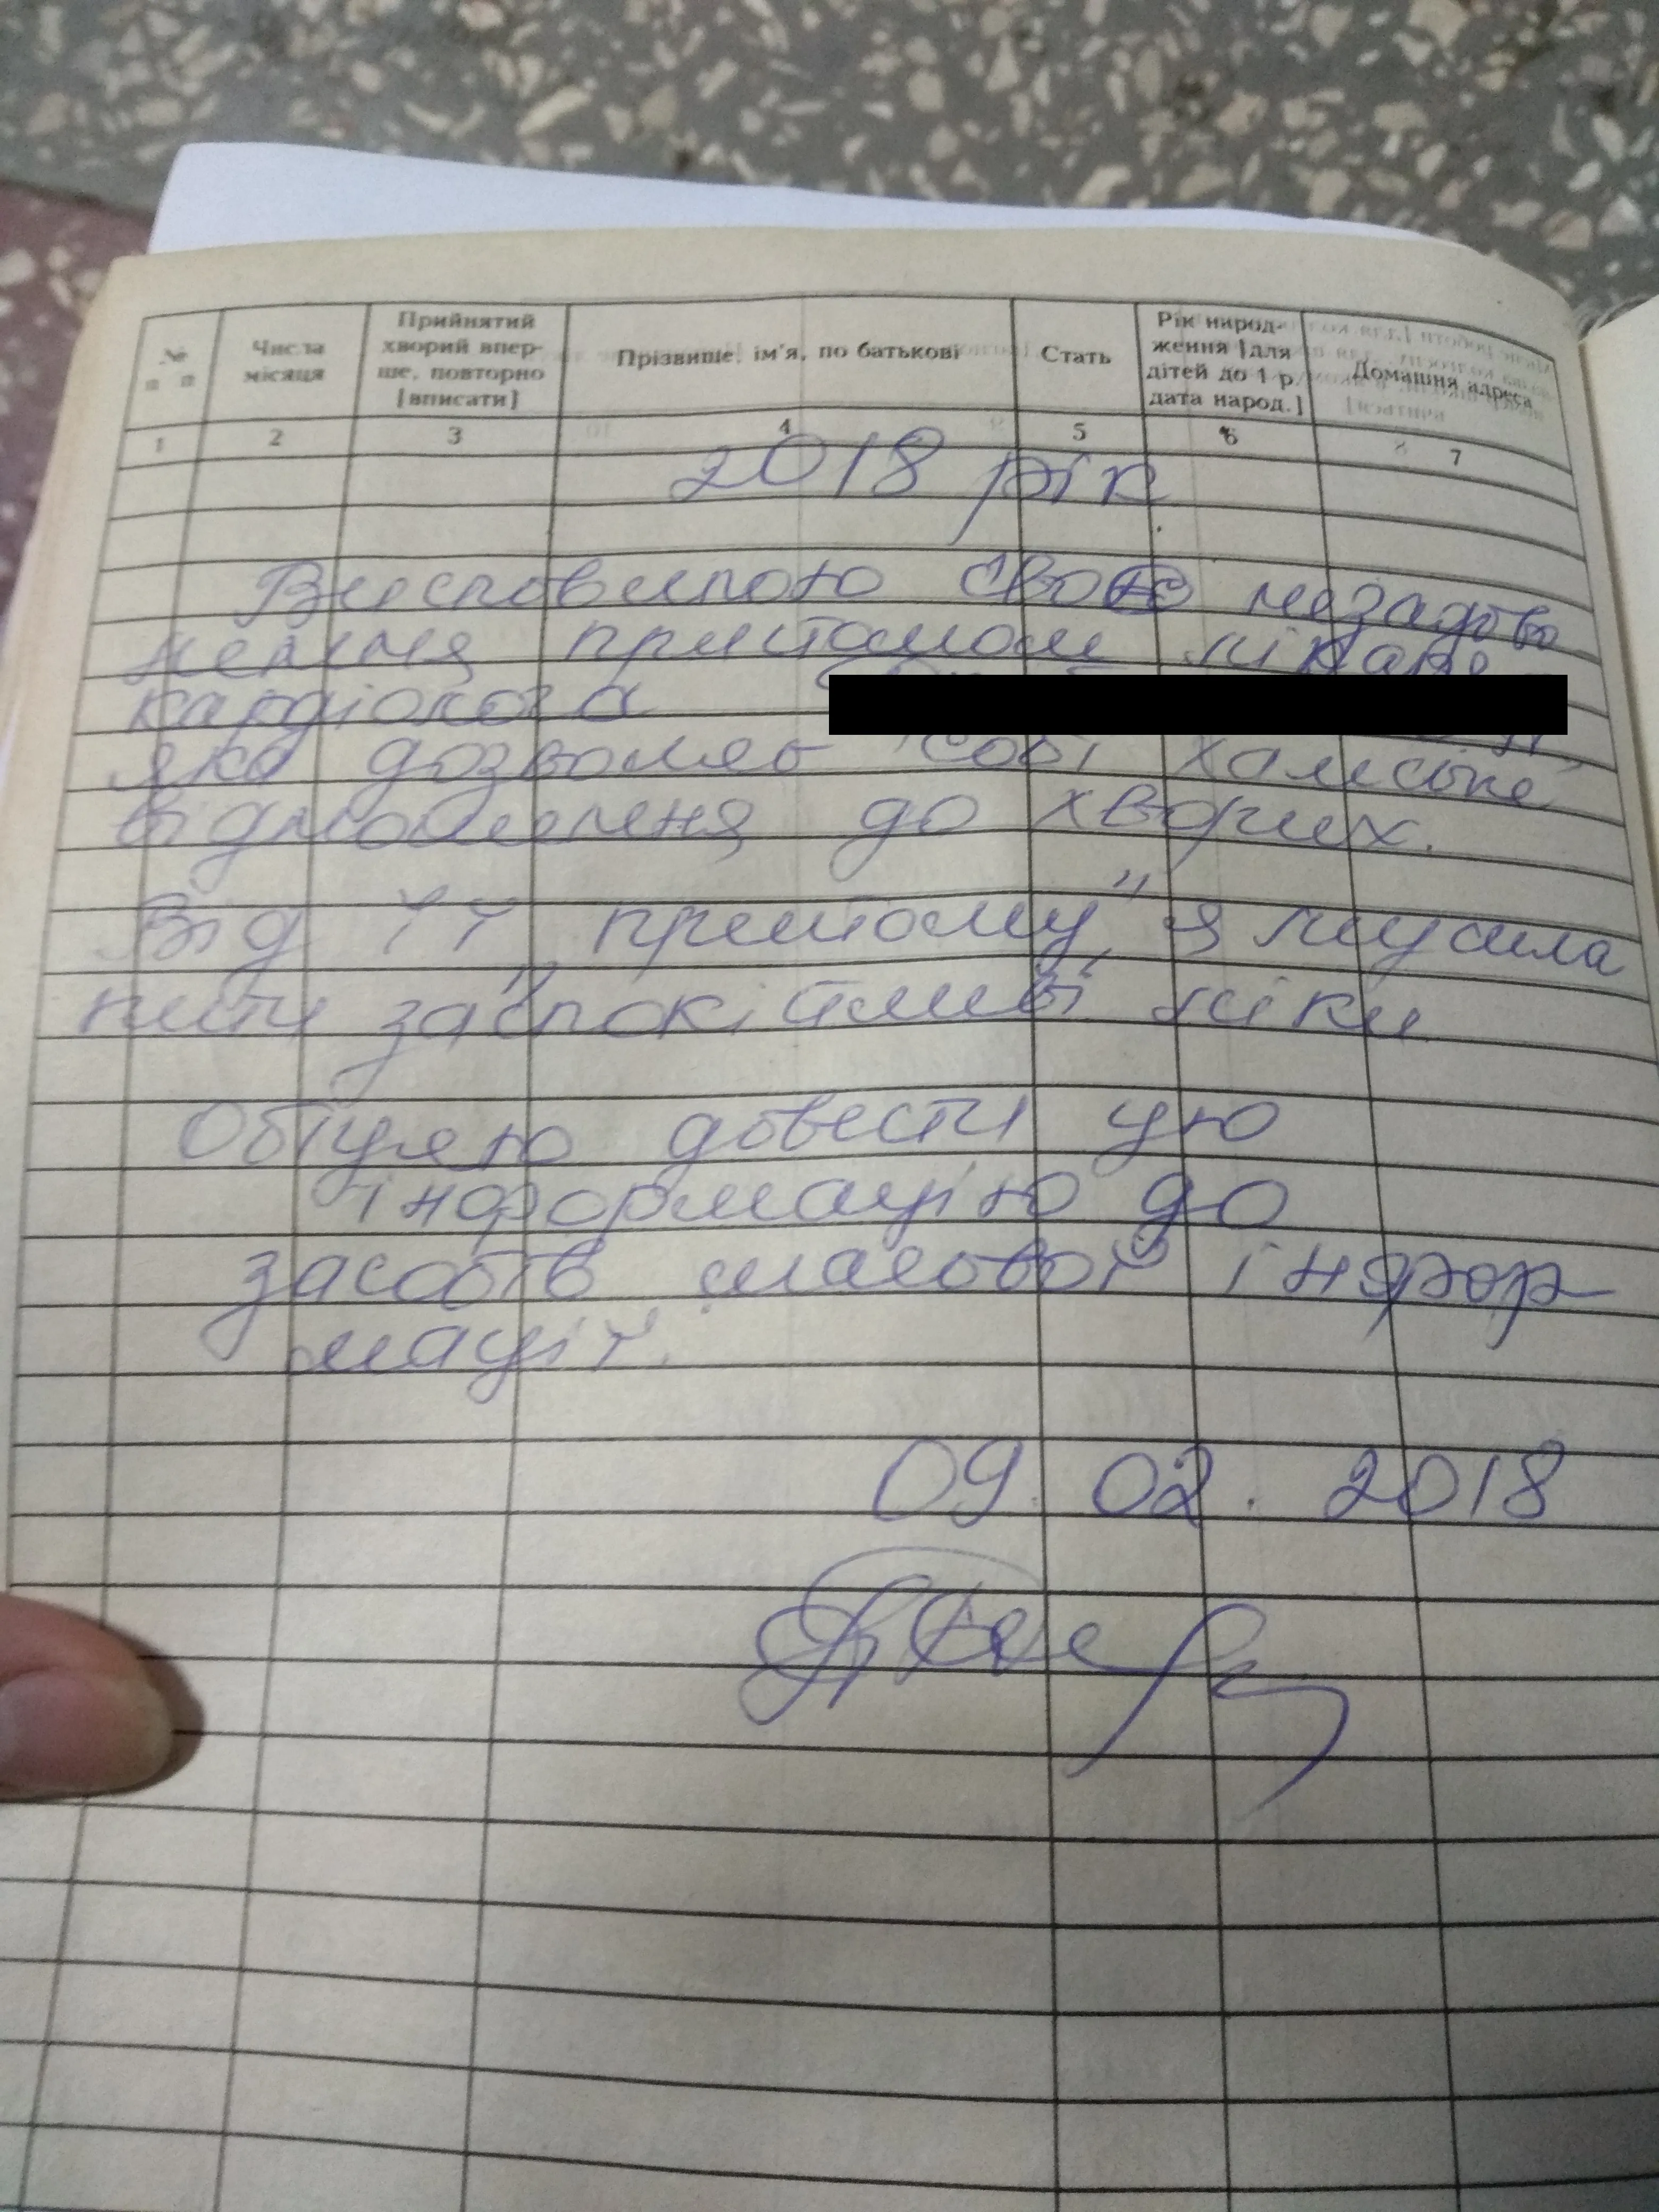 № п п
Числа місяця
Прийнятий хворий впер- ше, повторно [вписати]
Прізвище, ім'я, по батькові
Стать
Рік народ- ження [для дітей до 1 р. дата народ.]
Домашня адреса
1 2 3 4 5 6 7
2018 рік
Висповлюю своє незадово
лення прийомом лікаря
кардіолога
яка дозволяє собі хамське
відношення до хворих.
Від її „прийому" я мусила
пити заспокійливі ліки
Обіцяю довести цю
інформацію до
засобів масової інфор
мації.
09. 02. 2018